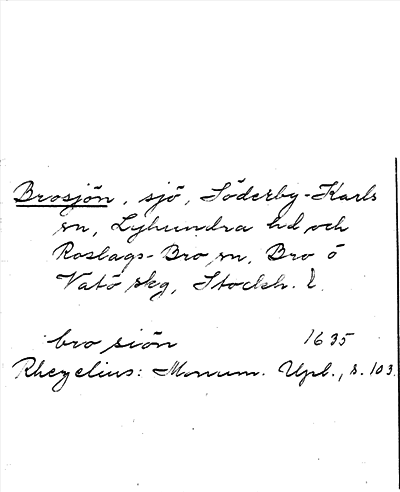 Brosjön, sjö, Söderby-Karls
sn, Lyhundra hd och
Roslags-Bro sn, Bro o
Vätö skg, Stockh. l.
bro siön 1635
Rhezelius: Monum. Upl., s. 103.